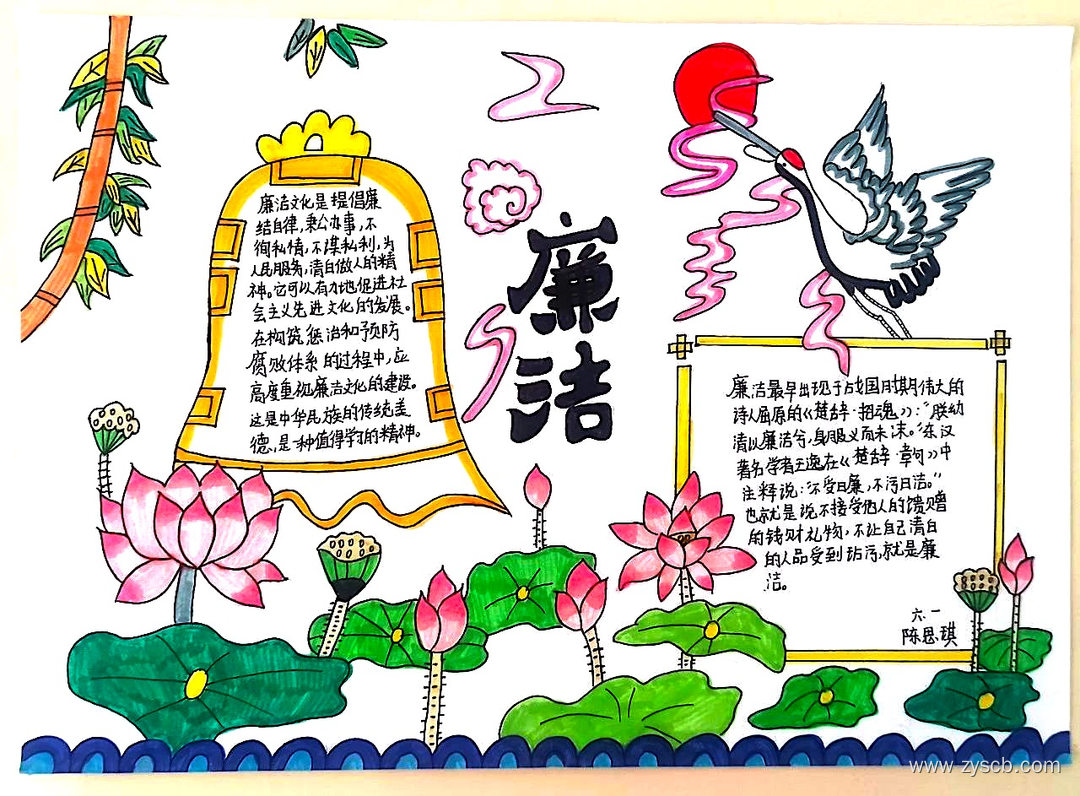 廉洁文化是提倡廉
结自律，秉公办事，不
徇私情，不谋私利，为
人民服务，清白做人的精
神。它可以有力地促进社
会主义先进文化的发展。
在构筑惩治和预防
腐败体系的过程中，应
高度重视廉洁文化的建设。
这是中华民族的传统美
德，是一种值得学习的精神。
廉
洁
廉洁最早出现于战国时期伟大的
诗人屈原的《楚辞·招魂》：“朕幼
清以廉洁兮，身服义而未沫。”东汉
著名学者王逸在《楚辞·章句》中
注释说：“不受曰廉，不污曰洁。”
也就是说不接受他人的馈赠
的钱财礼物，不让自己清白
的人品受到玷污，就是廉
洁。
六一
陈思琪
www.zyscb.com